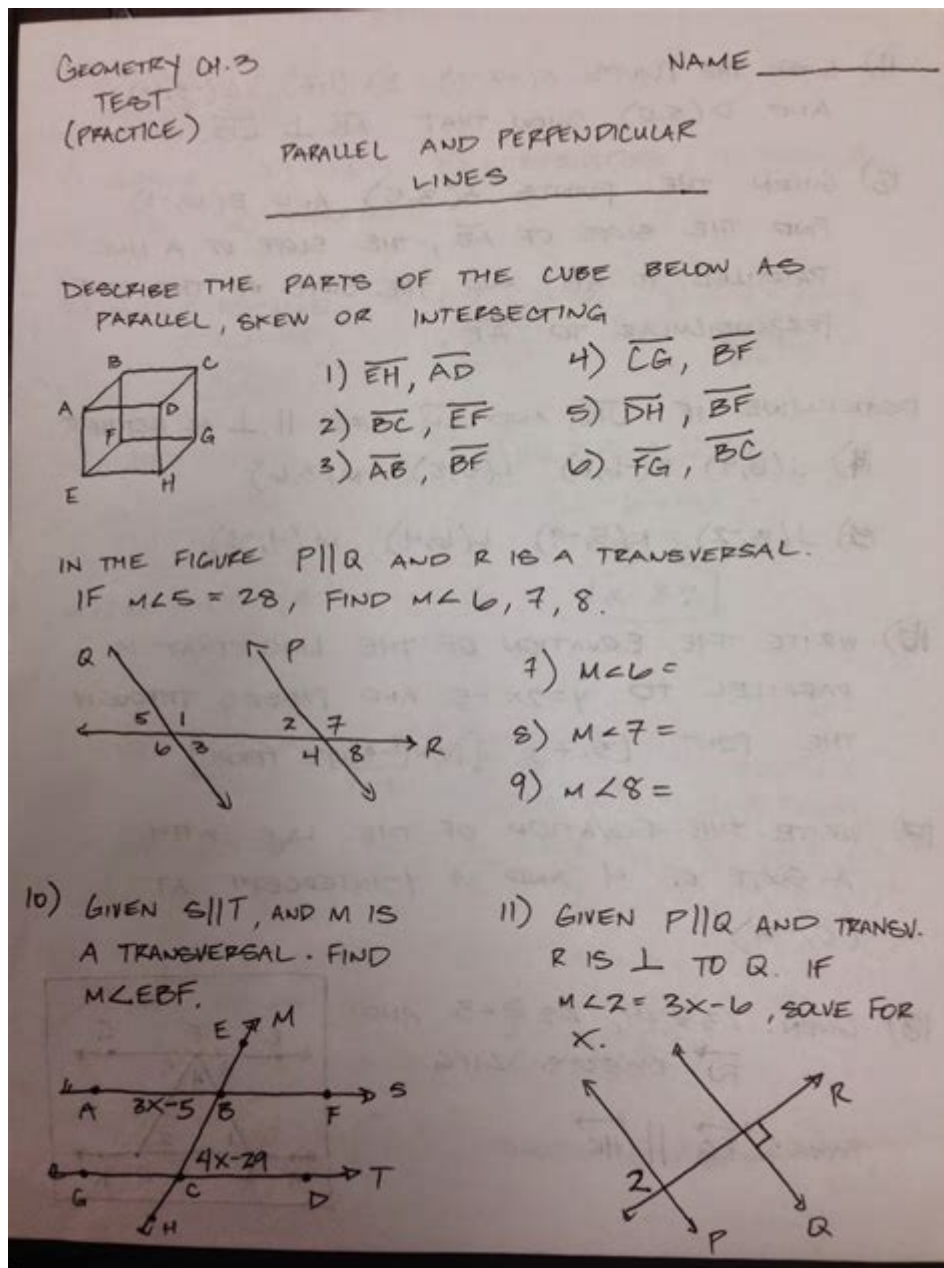 GEOMETRY CH.3
TEST
(PRACTICE)
NAME
PARALLEL AND PERPENDICULAR
LINES
DESCRIBE THE PARTS OF THE CUBE BELOW AS
PARALLEL, SKEW OR INTERSECTING
B C
A D
F G
E H
1) E̅H̅, A̅D̅
2) B̅C̅, E̅F̅
3) A̅B̅, B̅F̅
4) C̅G̅, B̅F̅
5) D̅H̅, B̅F̅
6) F̅G̅, B̅C̅
IN THE FIGURE P||Q AND R IS A TRANSVERSAL.
IF M∠5 = 28, FIND M∠ 6, 7, 8.
Q P
5 1 2 7
6 3 4 8 R
7) M∠6 =
8) M∠7 =
9) M∠8 =
10) GIVEN S||T, AND M IS
A TRANSVERSAL. FIND
M∠EBF.
E M
A 3X-5 B F S
4X-29
G C D T
H
11) GIVEN P||Q AND TRANSV.
R IS ⊥ TO Q. IF
M∠2 = 3X-6, SOLVE FOR
X.
R
2
P Q